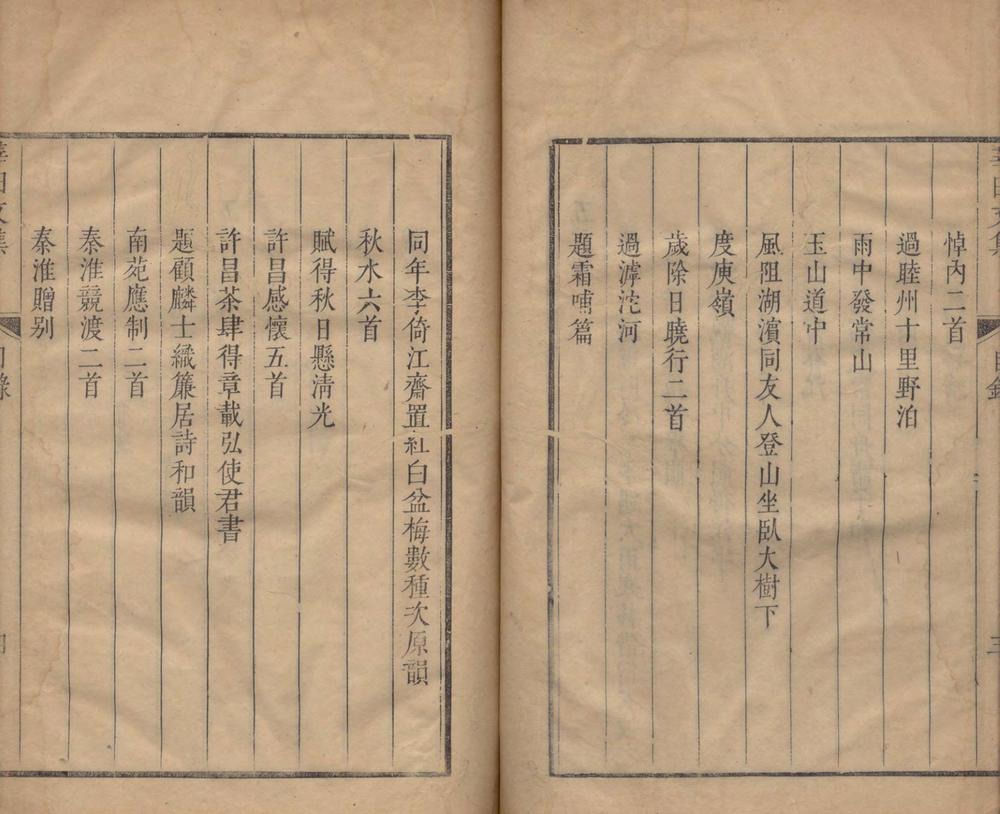 悼內二首
過睦州十里野泊
雨中發常山
玉山道中
風阻湖濵同友人登山坐臥大樹下
度庾嶺
歲除日曉行二首
過滹沱河
題霜哺篇
同年李倚江齋置紅白盆梅數種次原韻
秋水六首
賦得秋日懸淸光
許昌感懷五首
許昌茶肆得章載弘使君書
題顧麟士織簾居詩和韻
南苑應制二首
秦淮競渡二首
秦淮贈别